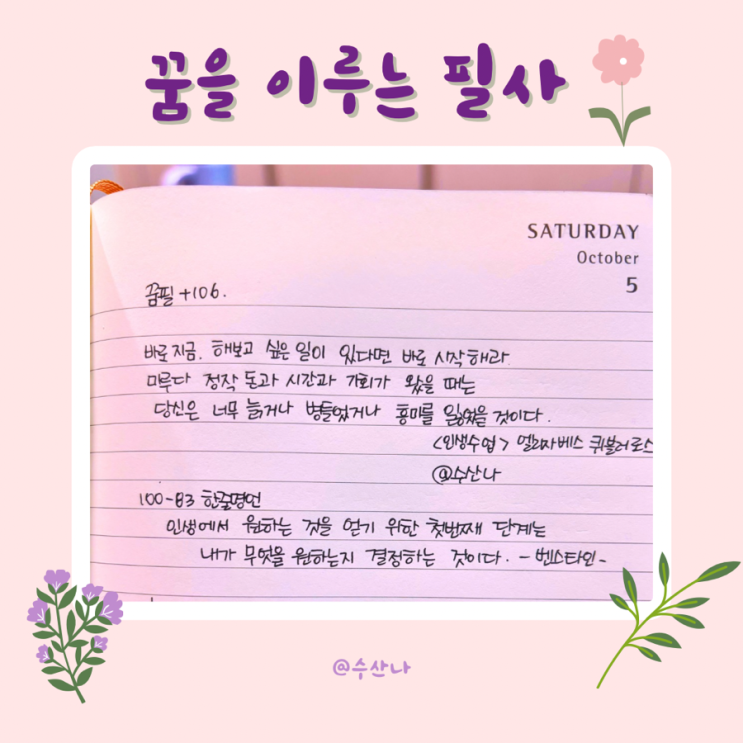 꿈을 이루는 필사
SATURDAY
October
5
꿈필 +106.
바로 지금. 해보고 싶은 일이 있다면 바로 시작해라
미루다 정작 돈과 시간과 기회가 왔을 때는
당신은 너무 늙거나 병들었거나 흥미를 잃었을 것이다.
<인생수업> 엘리자베스 퀴블러로스
@수산나
100-83 한줄명언
인생에서 원하는 것을 얻기 위한 첫번째 단계는
내가 무엇을 원하는지 결정하는 것이다. - 벤스타인 -
@수산나